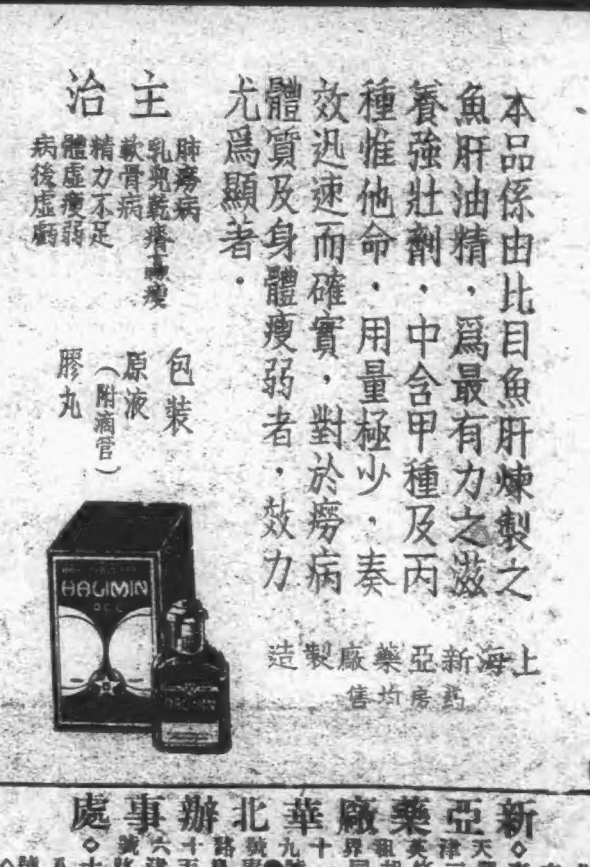 本品係由比目魚肝煉製之
魚肝油精，爲最有力之滋
養強壯劑，中含甲種及丙
種惟他命，用量極少，奏
效迅速而確實，對於癆病
體質及身體瘦弱者，效力
尤爲顯著。
主治
肺癆病
乳兒乾瘠羸瘦
軟骨病
精力不足
體虛瘦弱
病後虛虧
包裝
原液
（附滴管）
膠丸
HALIMIN
上海新亞藥廠製造
藥房均售
新亞藥廠華北辦事處